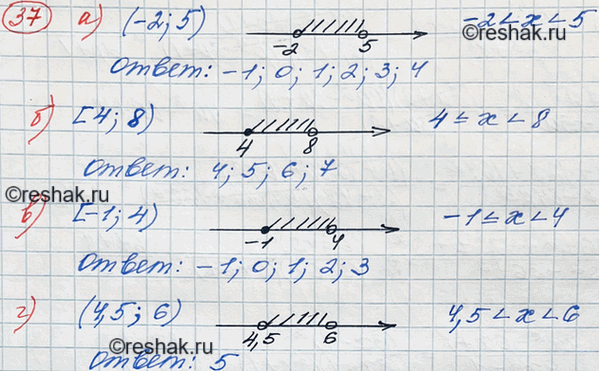 37 а) (-2; 5) -2 5 -2 < x < 5
Ответ: -1; 0; 1; 2; 3; 4
©reshak.ru
б) [4; 8) 4 8 4 ≤ x < 8
Ответ: 4; 5; 6; 7
©reshak.ru
в) [-1; 4) -1 4 -1 ≤ x < 4
Ответ: -1; 0; 1; 2; 3
г) (4,5; 6) 4,5 6 4,5 < x < 6
©reshak.ru
Ответ: 5
©reshak.ru